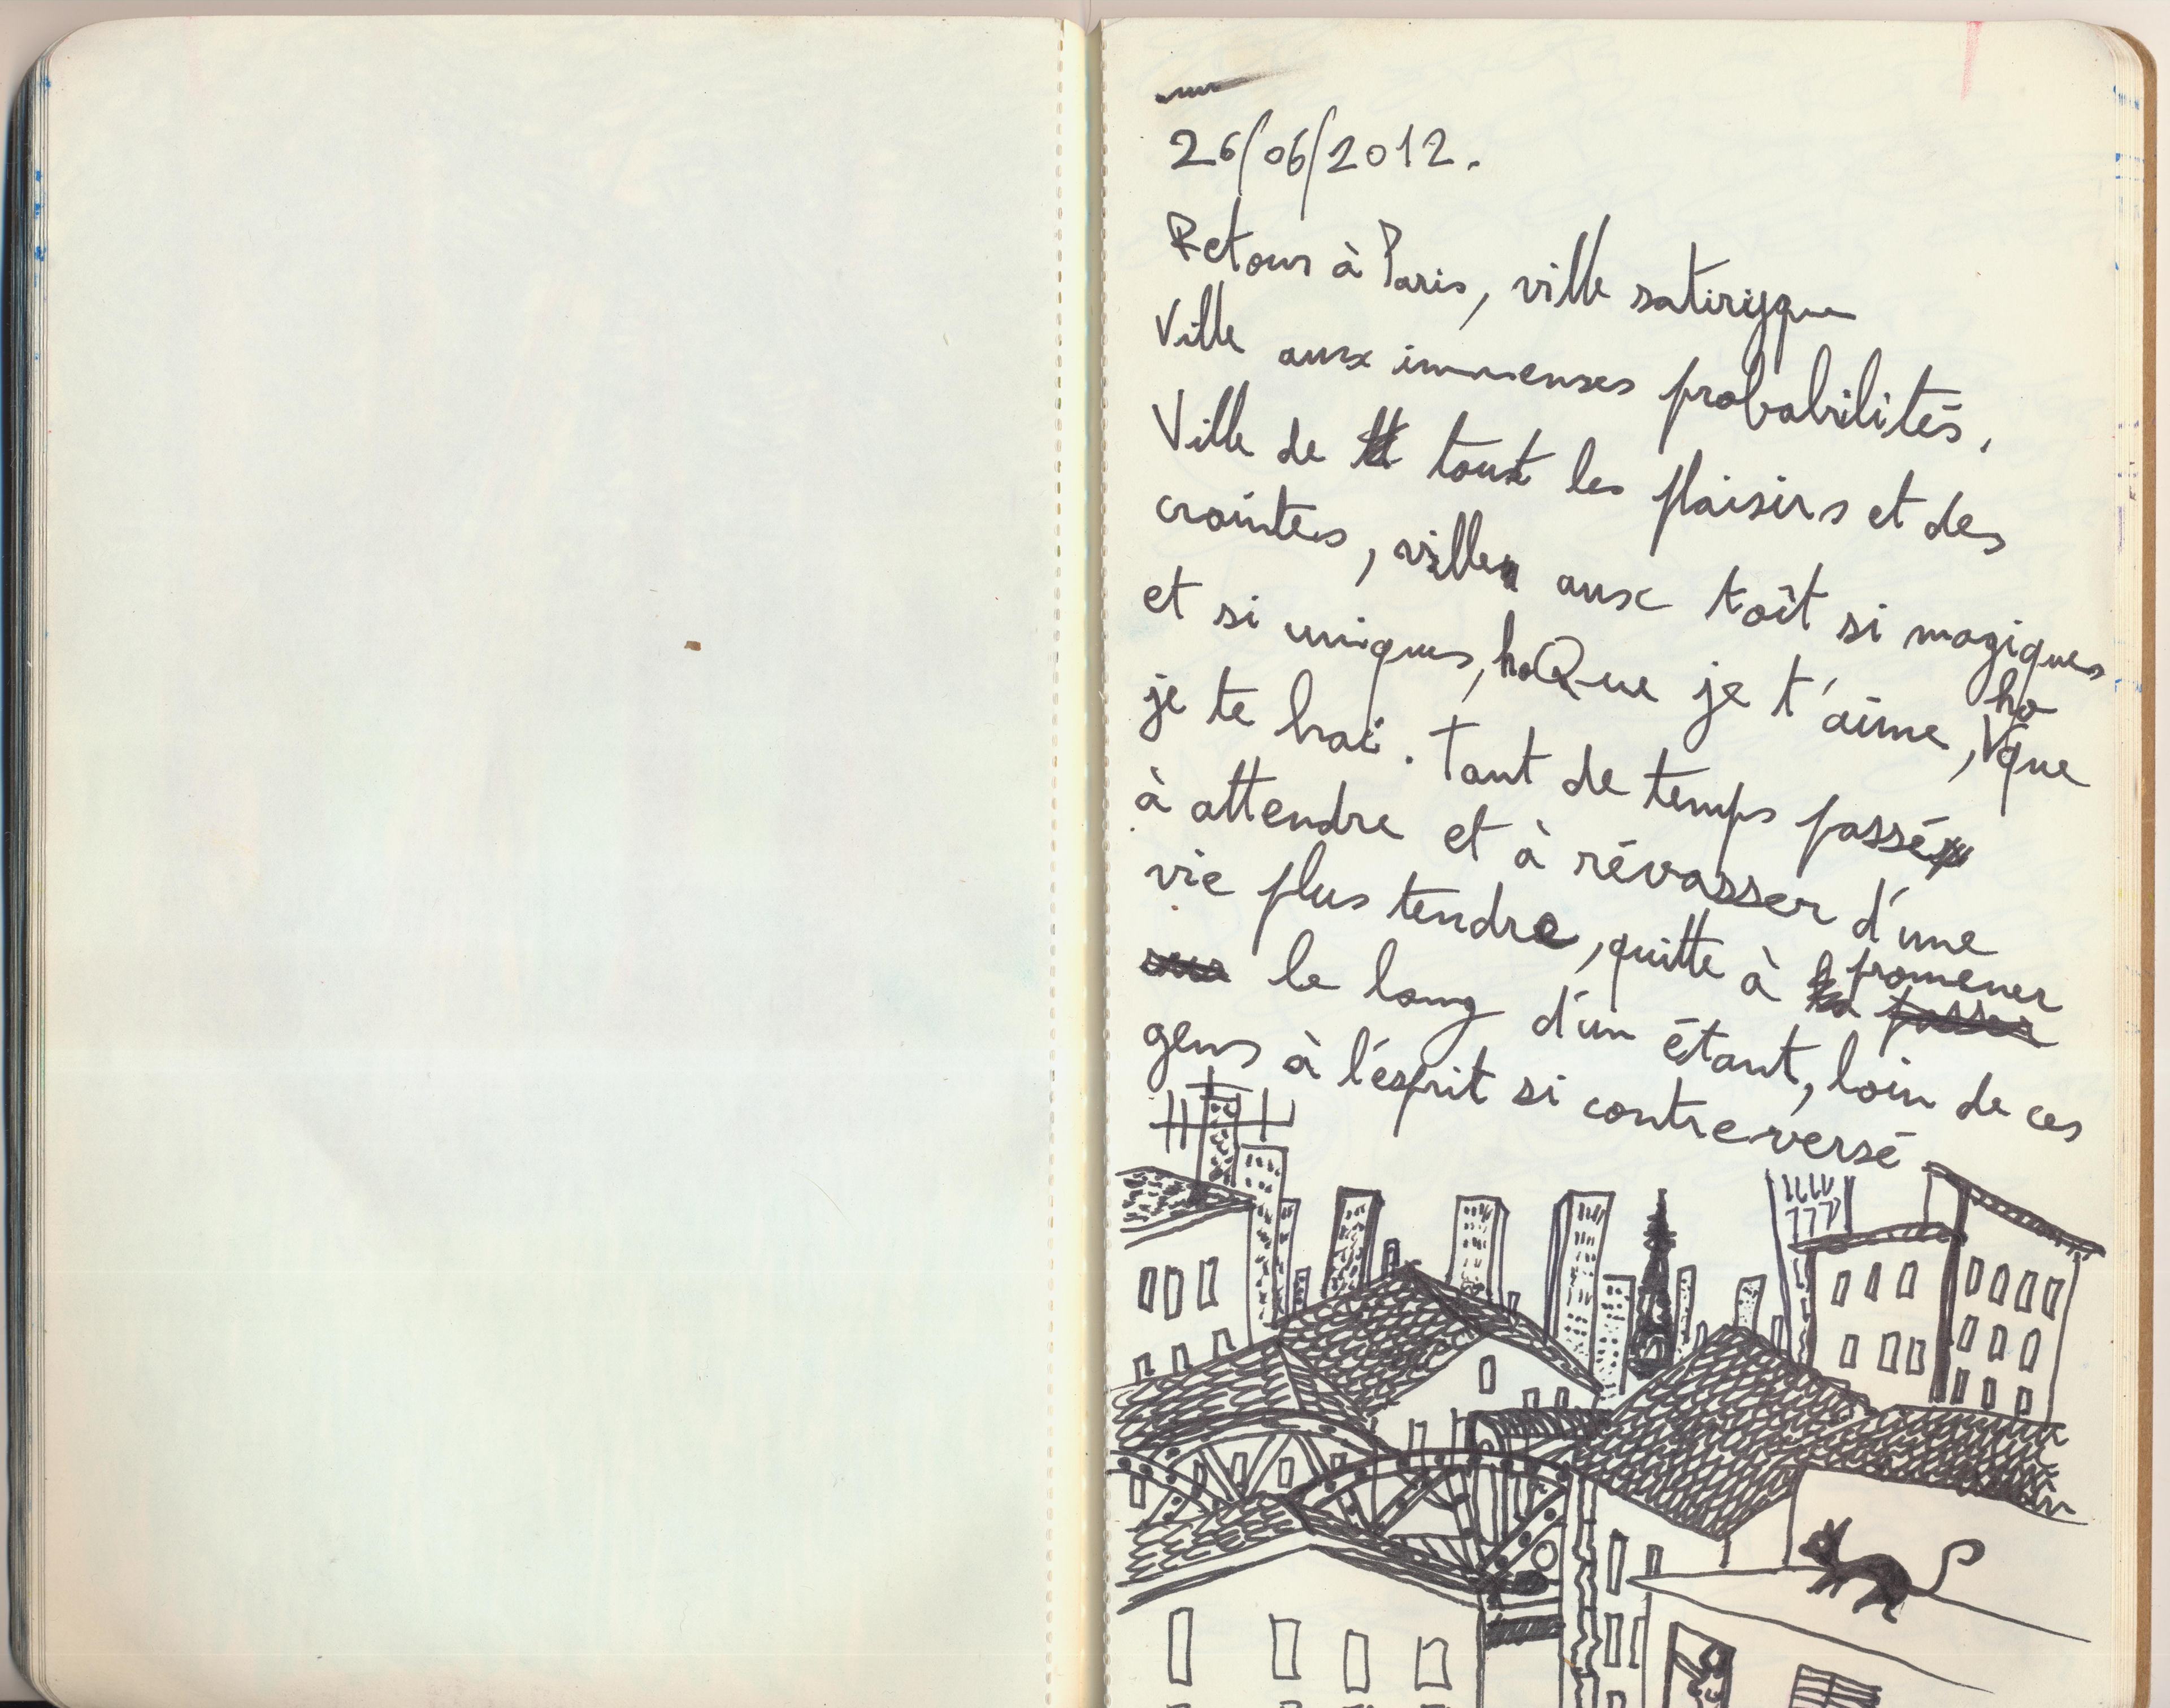 26/06/2012.
Retour à Paris, ville satiryque
Ville aux immenses probabilités,
Ville de tout les plaisirs et des
craintes, ville aux toît si magiques
et si uniques, ho Que je t'aime, ho que
je te hai. Tant de temps passé
à attendre et à révasser d'une
vie plus tendre, quitte à promener
le long d'un étant, loin de ces
gens à l'ésprit si contreversé